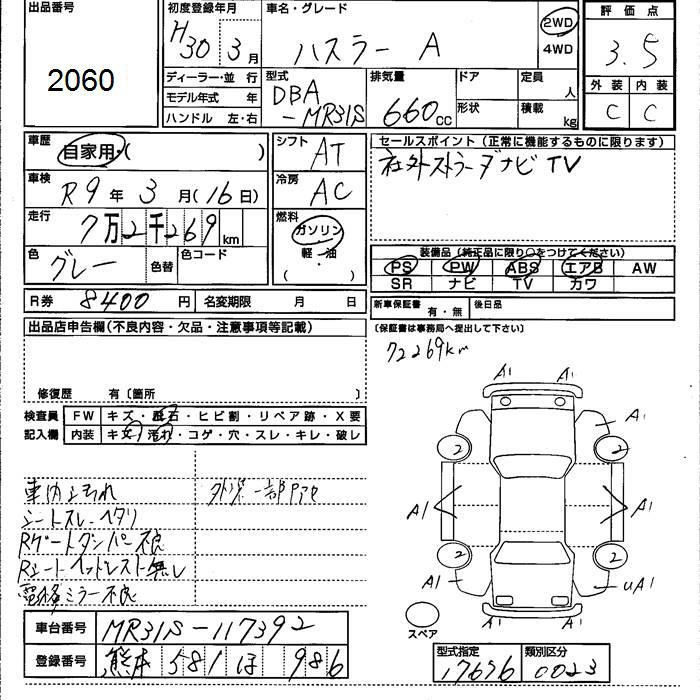 出品番号
2060
初度登録年月
H30 3月
車名・グレード
ハスラー A
2WD
4WD
評価点
3.5
外装 内装
C C
ディーラー・並行
モデル年式 年
ハンドル 左・右
型式
DBA
-MR31S
排気量
660cc
ドア
形状
定員
人
積載
kg
車歴
自家用・( )
車検
R9年3月(16日)
走行
7万2千269km
色
グレー
色替
色コード
シフト
AT
冷房
AC
燃料
ガソリン
・軽・油
( )
セールスポイント (正常に機能するものに限ります)
社外ストラーダナビ TV
装備品 (純正品に限り○をつけてください)
PS PW ABS エアB AW
SR ナビ TV カワ
R券 8400円 名変期限 月 日
新車保証書 有・無 後日品
(保証書は事務局へ提出して下さい)
72269km
出品店申告欄(不良内容・欠品・注意事項等記載)
修復歴 有〔箇所 〕
検査員
記入欄
FW キズ・飛石・ヒビ割・リペア跡・X要
内装 キズ・汚れ・コゲ・穴・スレ・キレ・破レ
車内ヨゴレ
外装一部アセ
シートスレ・ヘタリ
Rゲートダンパー不良
Rシートヘッドレスト無し
電格ミラー不良
A1 A1
A1
2 2
A1 A1
2 2
A1 UA1
A1 A1
スペア
車台番号 MR31S-117392
登録番号 熊本 581 ほ 986
型式指定 類別区分
17676 0023